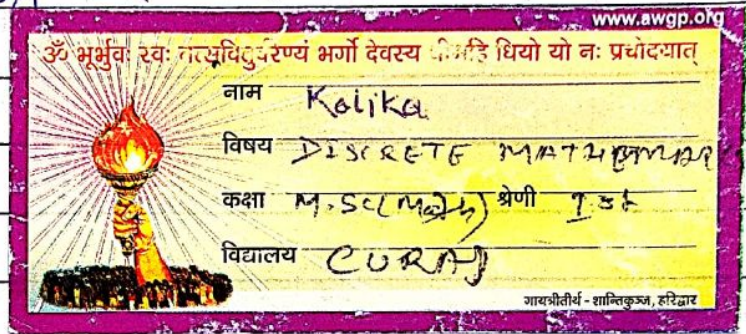 www.awgp.org
ॐ भूर्भुवः स्वः तत्सवितुर्वरेण्यं भर्गो देवस्य धीमहि धियो यो नः प्रचोदयात्
नाम Kalika
विषय DISCRETE
कक्षा M.Sc(Math) श्रेणी Ist
विद्यालय CURAJ
गायत्रीतीर्थ - शान्तिकुञ्ज, हरिद्वार